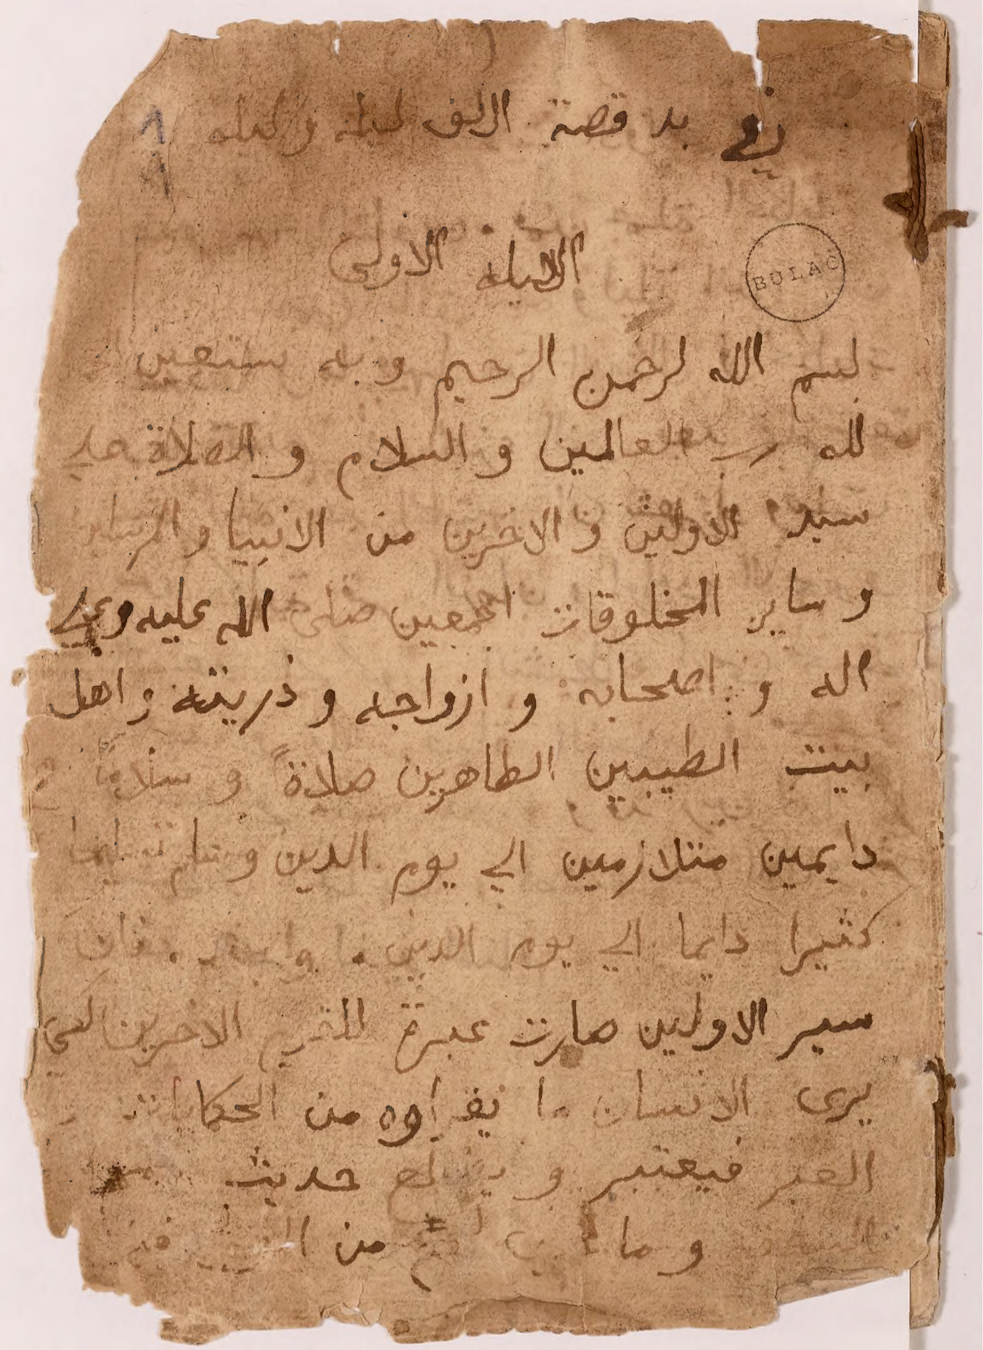 في بد قصة الالف ليله وليله
١
١
الليله الاولى
BULAC
بسم الله لرحمن الرحيم و به نستعين
لله رب العالمين و السلام و الصلاة علي
سيد الاولين و الاخرين من الانبيا و المرسلين
و ساير المخلوقات اجمعين صلى الله عليه وعلي
اله و اصحابه و ازواجه و ذريته و اهل
بيت الطيبين الطاهرين صلاةً و سلاماً
دايمين متلازمين الي يوم الدين و سلم تسليما
كثيرا دايما الي يوم الدين و فان
سير الاولين صارت عبرة للقوم الاخرين لكي
يرى الانسان ما يقراوه من الحكايات
العبر فيعتبر و يطالع حديث
و ما من